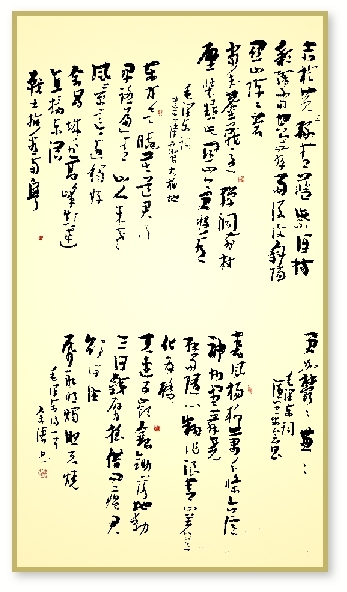 赤橙黄绿青蓝紫谁持
彩练当空舞雨后复斜阳
关山阵阵苍
当年鏖战急弹洞前村
壁装点此关山今朝更好看
毛泽东词
菩萨蛮大柏地
东方欲晓莫道君行
早踏遍青山人未老
风景这边独好
会昌城外高峰颠连
直接东溟
战士指看南粤
更加郁々葱々
毛泽东词
清平乐会昌
春风杨柳万千条六亿
神州尽舜尧
红雨随心翻作浪青山着意
化为桥
天连五岭银锄落地动
三河铁臂摇借问瘟君
欲何往
纸船明烛照天烧
毛泽东诗